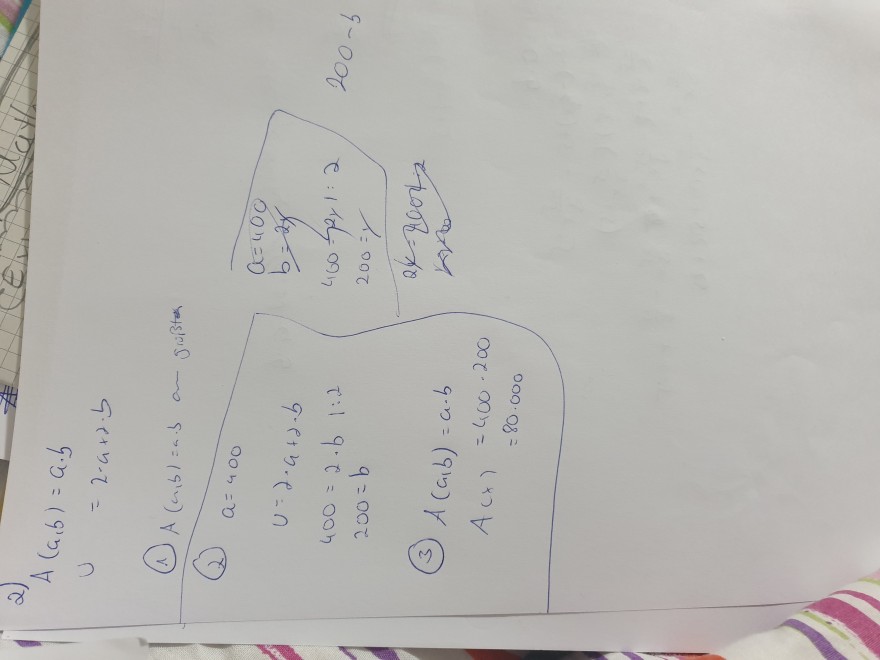 2)
A(a,b) = a·b
U = 2·a+2·b
① A(a,b) = a·b am größten
② a = 400
U = 2·a+2·b
400 = 2·b |:2
200 = b
③ A(a,b) = a·b
A(x) = 400·200
= 80.000
a = 400
b = 2x
400 = 2x |:2
200 = x
200-b